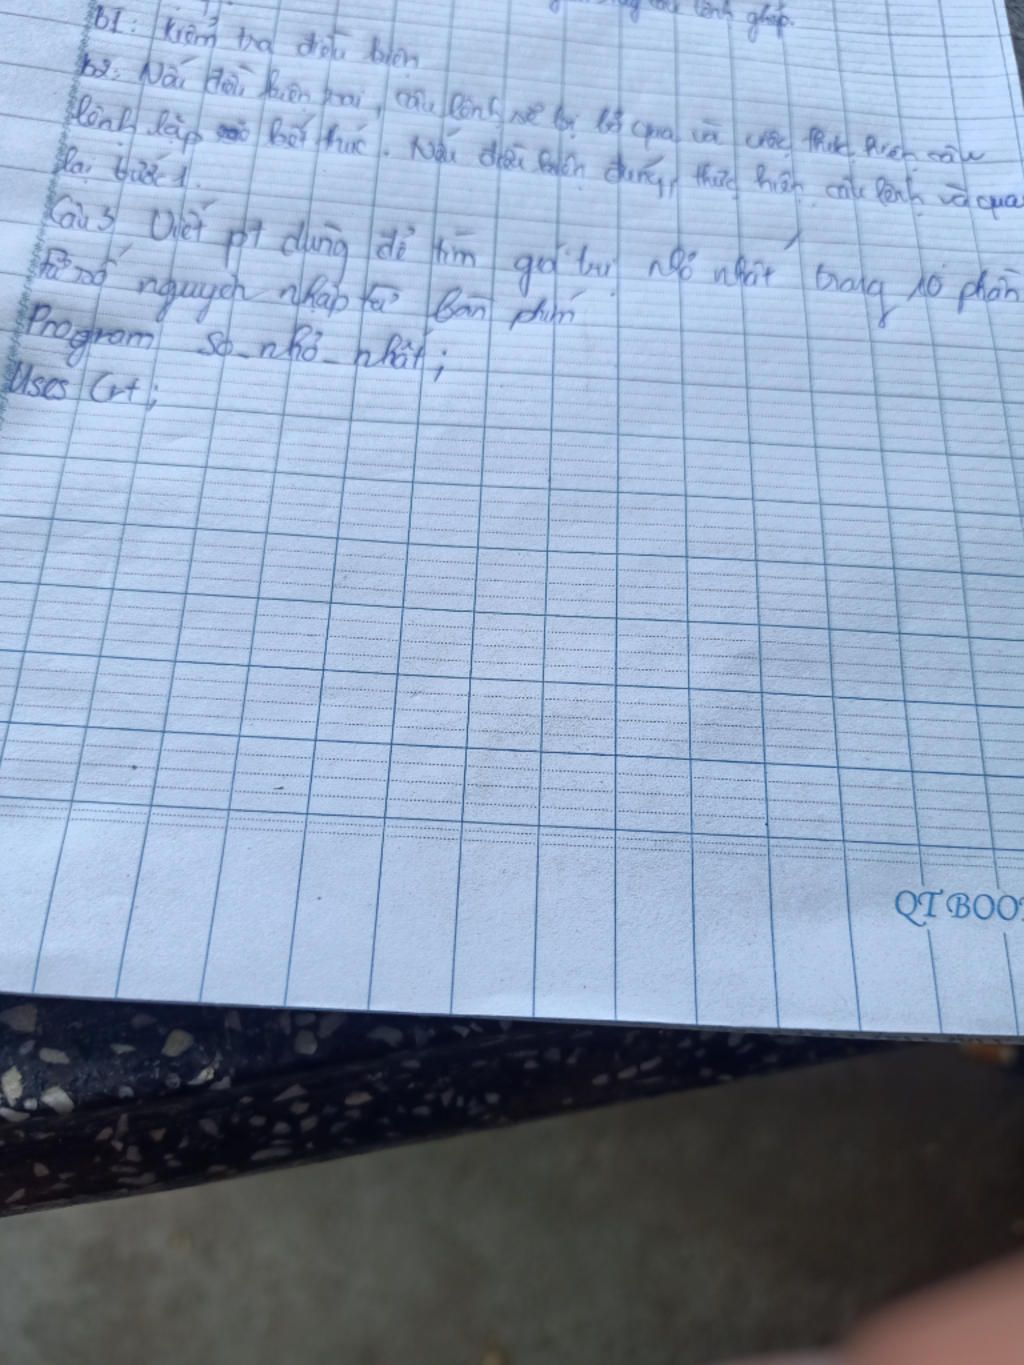 câu lệnh ghép.
b1: Kiểm tra điều kiện
b2: Nếu điều kiện sai, câu lệnh sẽ bị bỏ qua và việc thực hiện câu
lệnh lặp kết thúc. Nếu điều kiện đúng, thực hiện câu lệnh và quay
lại bước 1.
Câu 3 Viết pt dùng để tìm giá trị nhỏ nhất trong 10 phần
tử số nguyên nhập từ bàn phím
Program so_nhỏ_nhất;
Uses Crt;
QT BOO